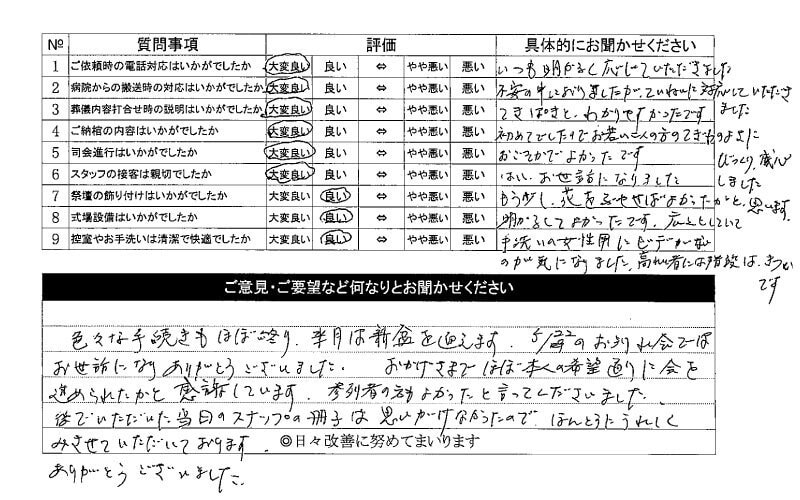 № 質問事項 評価 具体的にお聞かせください
1 ご依頼時の電話対応はいかがでしたか 大変良い 良い ⇔ やや悪い 悪い いつも明かるく応じていただきました
2 病院からの搬送時の対応はいかがでしたか 大変良い 良い ⇔ やや悪い 悪い 不安の中におりましたが、ていねいに対応していただき
3 葬儀内容打合せ時の説明はいかがでしたか 大変良い 良い ⇔ やや悪い 悪い てきぱきと、わかりやすかったです ました
4 ご納棺の内容はいかがでしたか 大変良い 良い ⇔ やや悪い 悪い 初めてでしたけでお若い の方のてきぱ
5 司会進行はいかがでしたか 大変良い 良い ⇔ やや悪い 悪い おごそかでよかったです びっくり、感心
6 スタッフの接客は親切でしたか 大変良い 良い ⇔ やや悪い 悪い はい、お世話になりました しました
7 祭壇の飾り付けはいかがでしたか 大変良い 良い ⇔ やや悪い 悪い もう少し、花をふやせばよかったかと、思います。
8 式場設備はいかがでしたか 大変良い 良い ⇔ やや悪い 悪い 明かるくてよかったです。広々としていて
9 控室やお手洗いは清潔で快適でしたか 大変良い 良い ⇔ やや悪い 悪い 手洗いの女性用にビデが無い
のが気になりました、高れい者には階段は、きつい
です
ご意見・ご要望など何なりとお聞かせください
色々な手続きもほぼ終り、半月は新盆を迎えます。5/22のお別れ会では
お世話になりありがとうございました。おかげさまでほぼ本人の希望通りに会を
進められたかと感謝しています。参列者の方もよかったと言ってくださいました。
後でいただいた当日のスナップの冊子は思いがけなかったので、ほんとうにうれしく
みさせていただいております。 ◎日々改善に努めてまいります
ありがとうございました。